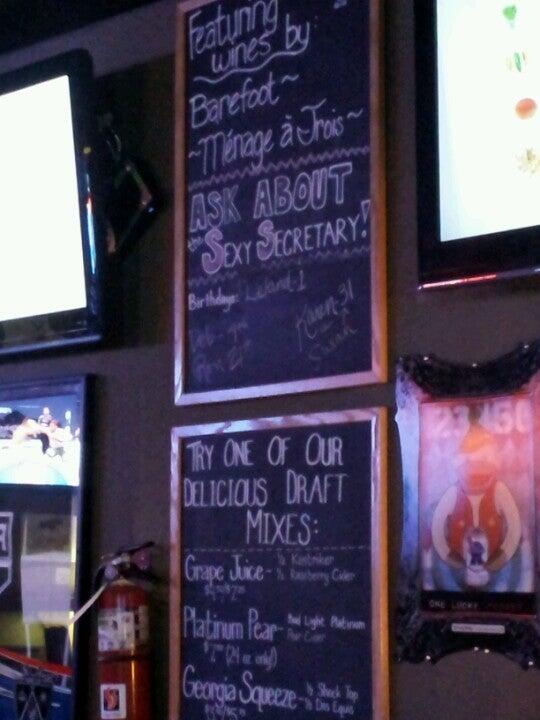 Featuring
wines by
Barefoot~
~Ménage à Trois~
ASK ABOUT
the SEXY SECRETARY!
Birthdays: Leland-1
Karen-31
Sarah
TRY ONE OF OUR
DELICIOUS DRAFT
MIXES:
Grape Juice- ½ Kostriker
½ Raspberry Cider
Platinum Pear- Bud Light Platinum
Pear Cider
(24 oz only)
Georgia Squeeze- ½ Shock Top
½ Dos Equis
ONE LUCKY